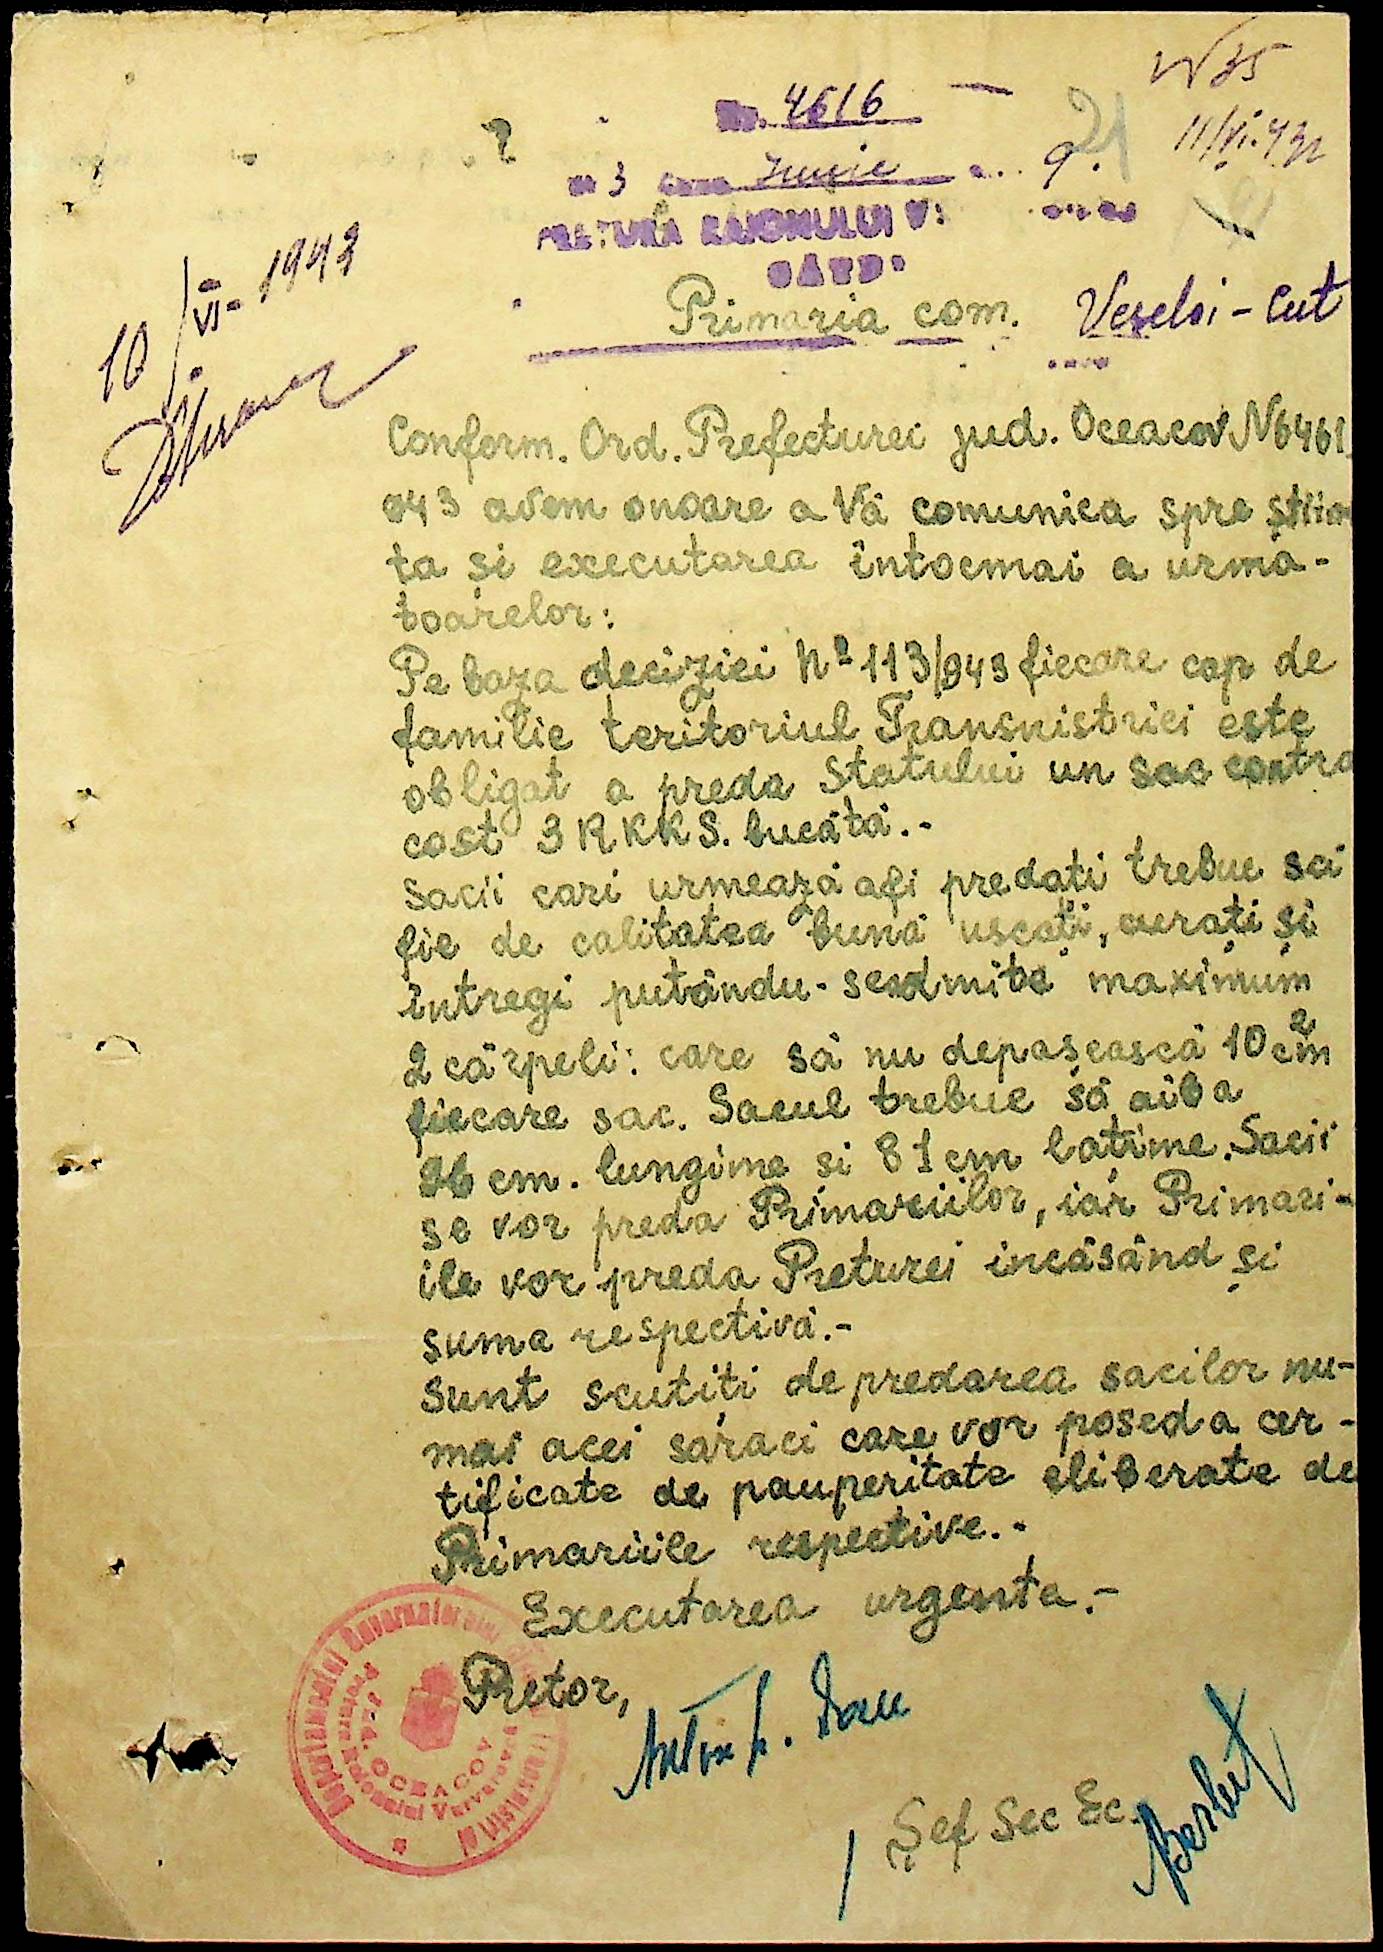 N 35
11/VI.43
Nr. 4616
21
3 Iunie
PRETURA RAIONULUI
10/VI-1943
Primaria com. Veseloi-Cut
Conform. Ord. Prefecturei jud. Oceacov N 6461
943 avem onoare a Vă comunica spre știin
ta si executarea întocmai a urmă-
toarelor:
Pe baza deciziei Nº 113/943 fiecare cap de
familie teritoriul Transnistriei este
obligat a preda Statului un sac contra
cost 3 RKKS. bucată.-
Sacii cari urmează a fi predați trebue să
fie de calitatea bună uscați, curați și
întregi putându-se admite maximum
2 cârpeli: care să nu depașească 10 cm²
fiecare sac. Sacul trebue să aiba
96 cm. lungime și 81 cm latime. Sacii
se vor preda Primariilor, iar Primari-
ile vor preda Preturei incâsând și
suma respectivă.-
Sunt scutiți de predarea sacilor nu-
mai acei săraci care vor poseda cer-
tificate de pauperitate eliberate de
Primariile respective.-
Executarea urgenta.-
Pretor,
Șef Sec Ec.
OCEACOV